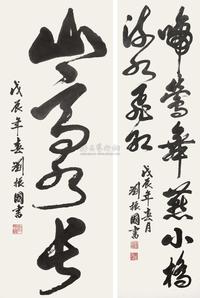 啼莺舞燕小桥
流水飞红
戊辰年春月
刘振国书
山高水长
戊辰年春刘振国书